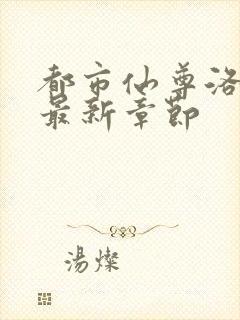 都市仙尊洛
最新章節
湯燦